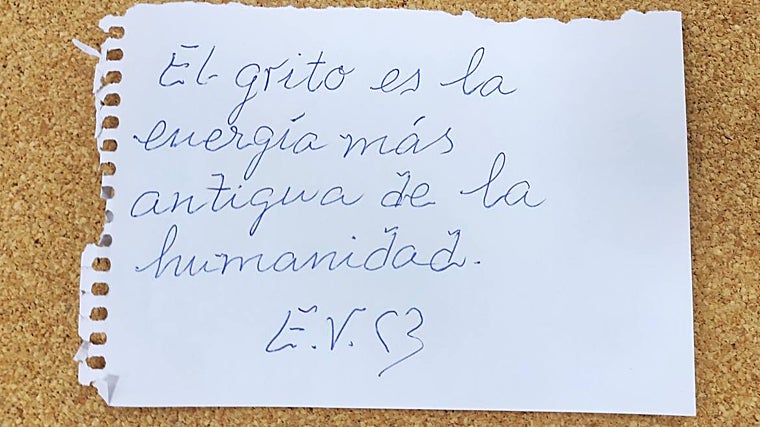 El grito es la
energía más
antigua de la
humanidad.
E.V.